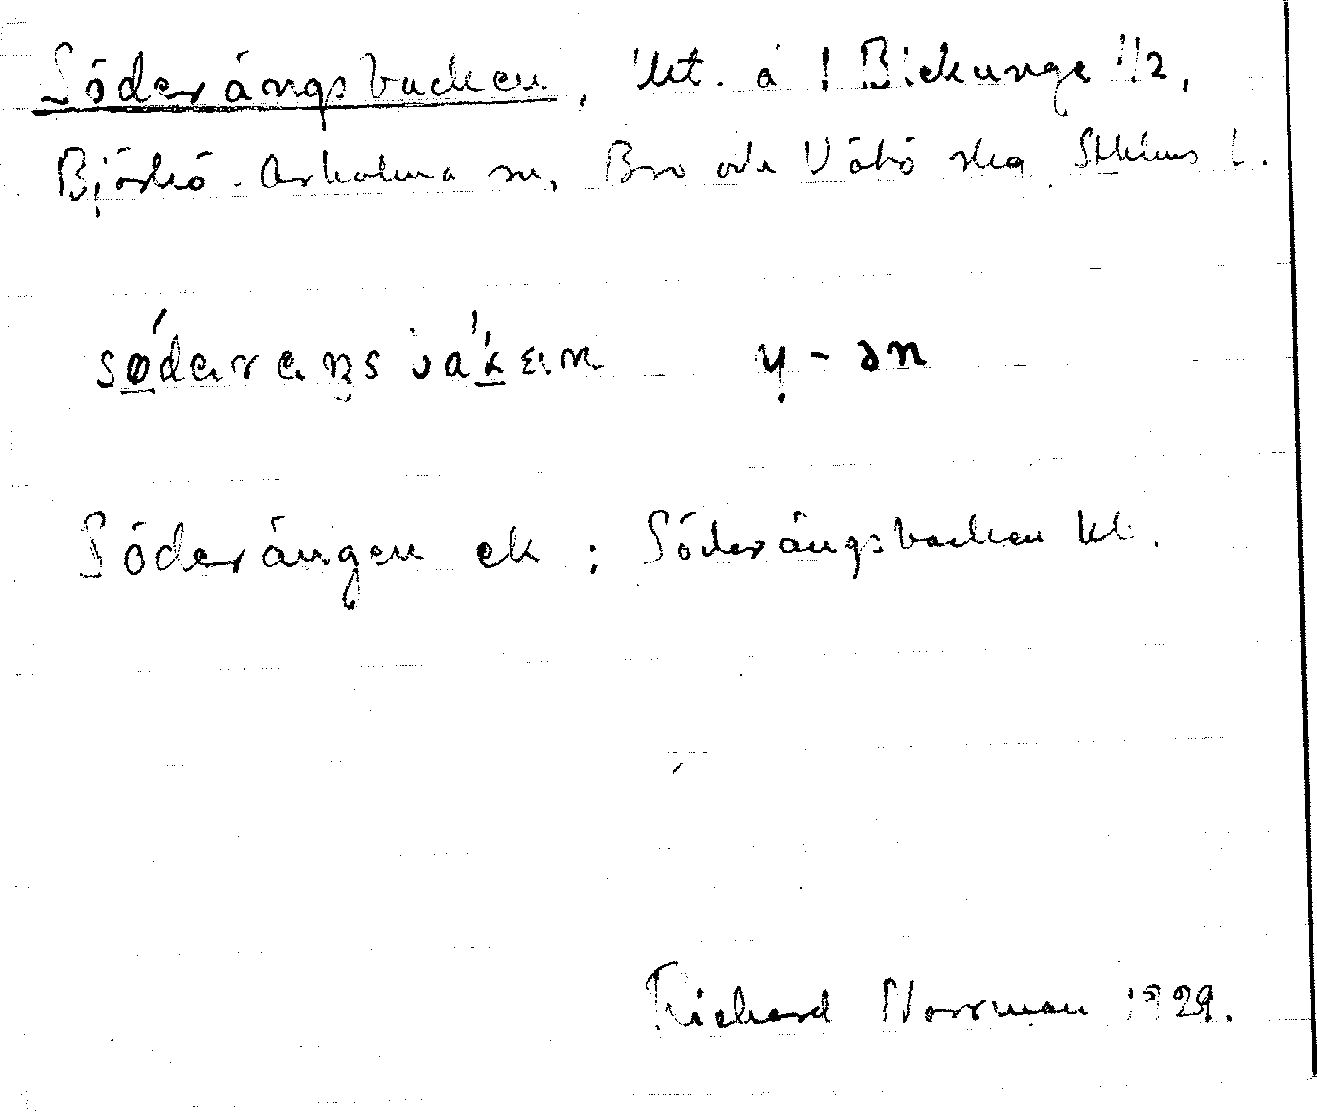 Söderängsbacken, lht. å 1 Björkunge 1/2,
Björkö-Arholma sn, Bro och Vätö slg Sthlms l.
Söderängen ek : Söderängsbacken kl.
Richard Norrman 1929.